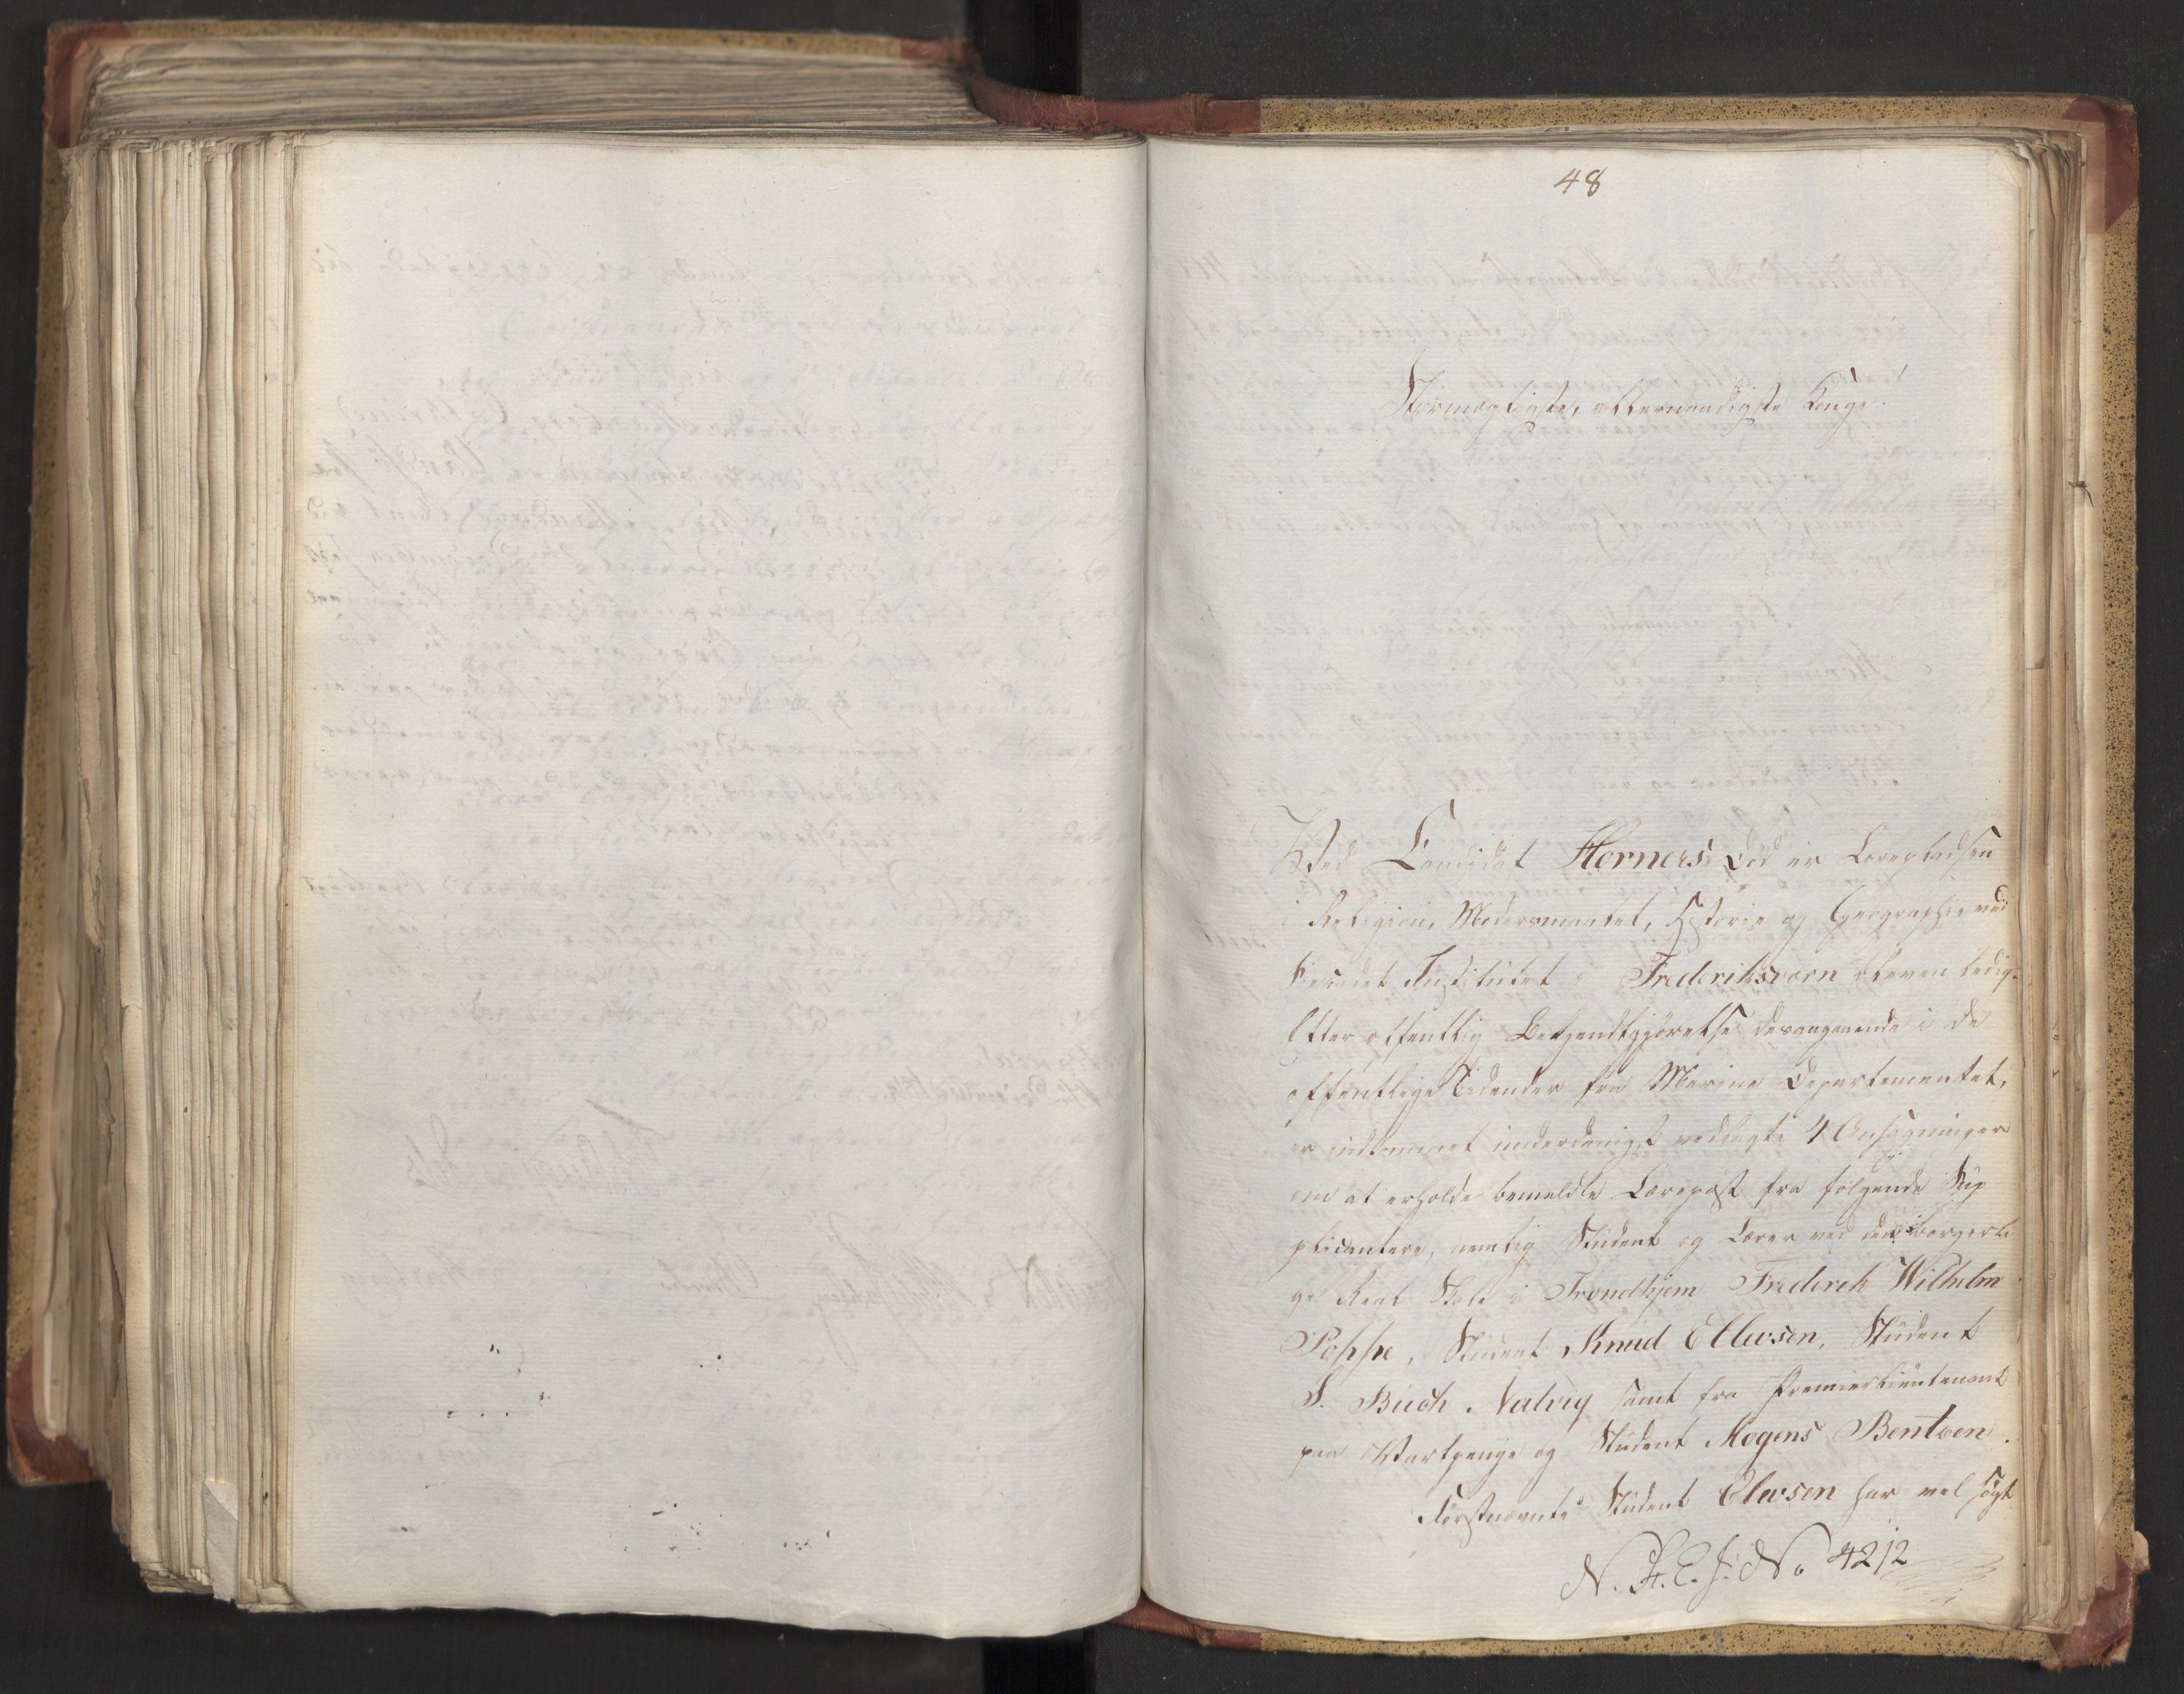 48
Stormægtigste, allernaadigste Konge!
Ved Candidat Horners Död er Lærepladsen
i Religion, Modersmaalet, Historie og Geographie ved
Söecadet Institutet i Frederiksværn bleven ledig.
Efter offentlig Bekjendtgjörelse desangaaende i de
offentlige Tidender fra Marine Departementet,
er indkommet underdanigst vedlagte 4 Ansögninger
om at erholde bemeldte Lærepost fra fölgende Sup
plicantere, nemlig Student og Lærer ved den borgerli
ge Real Skole i Trondhjem Frederik Wilhelm
Poppe, Student Knud Ellevsen, Student
S. Buch Nalvig samt fra Premierlieutenant
paa Vartpenge og Student Mogens Bentzen.
Förstnævnte Student Elevsen har vel sögt
N. H. E. J. No 4212